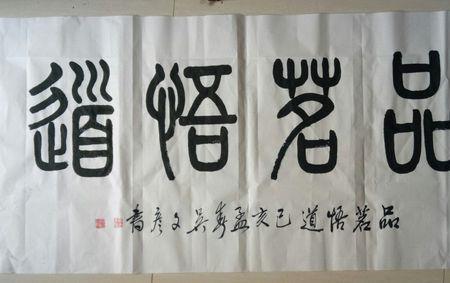 品茗悟道
品茗悟道己亥孟春吴文彦书